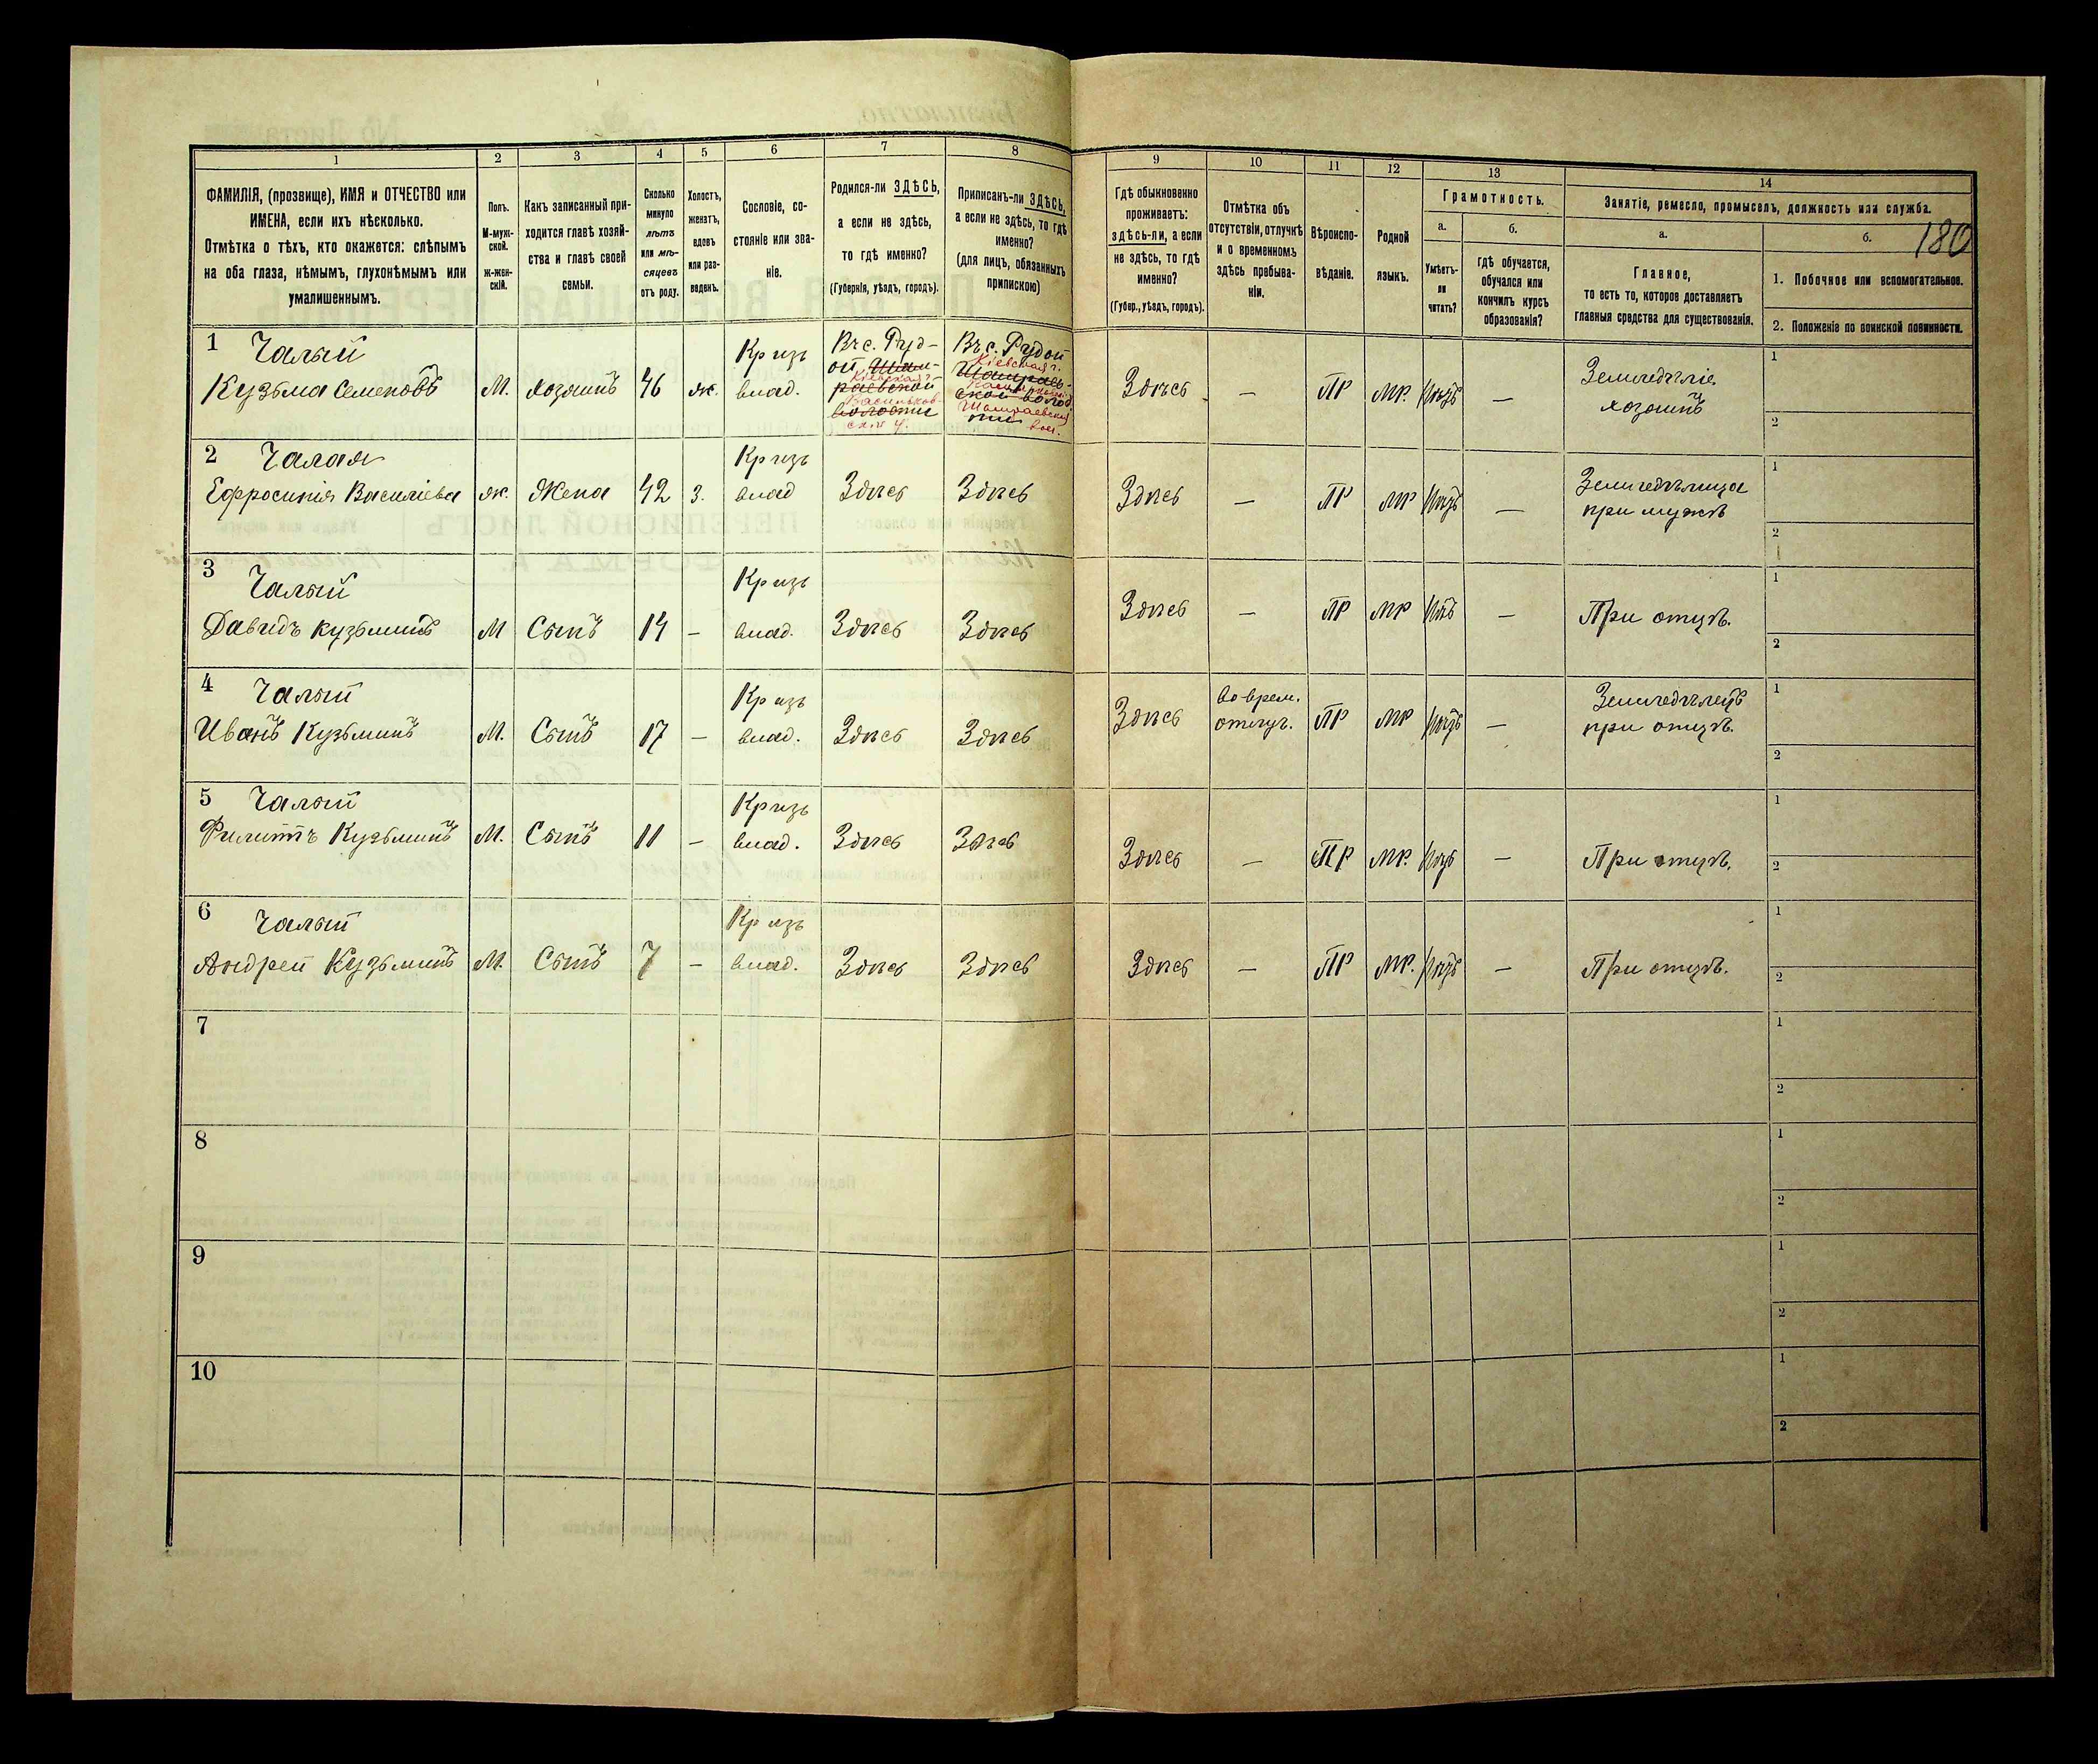 180
1
2
3
4
5
6
7
8
9
10
11
12
13
14
ФАМИЛІЯ, (прозвище), ИМЯ и ОТЧЕСТВО или
ИМЕНА, если ихъ нѣсколько.
Отмѣтка о тѣхъ, кто окажется: слѣпымъ
на оба глаза, нѣмымъ, глухонѣмымъ или
умалишеннымъ.
Полъ.
М-муж-
ской.
Ж-жен-
скій.
Какъ записанный при-
ходится главѣ хозяй-
ства и главѣ своей
семьи.
Сколько
минуло
лѣтъ
или мѣ-
сяцевъ
отъ роду.
Холостъ,
женатъ,
вдовъ
или раз-
веденъ.
Сословіе, со-
стояніе или зва-
ніе.
Родился-ли ЗДѢСЬ,
а если не здѣсь,
то гдѣ именно?
(Губернія, уѣздъ, городъ).
Приписанъ-ли ЗДѢСЬ,
а если не здѣсь, то гдѣ
именно?
(для лицъ, обязанныхъ
припискою)
Гдѣ обыкновенно
проживаетъ:
здѣсь-ли, а если
не здѣсь, то гдѣ
именно?
(Губер., уѣздъ, городъ).
Отмѣтка объ
отсутствіи, отлучкѣ
и о временномъ
здѣсь пребыва-
ніи.
Вѣроиспо-
вѣданіе.
Родной
языкъ.
Грамотность.
а.
Умѣетъ-
ли
читать?
б.
гдѣ обучается,
обучался или
кончилъ курсъ
образованія?
Занятіе, ремесло, промыселъ, должность или служба.
а.
Главное,
то есть то, которое доставляетъ
главныя средства для существованія.
б.
1. Побочное или вспомогательное.
2. Положеніе по воинской повинности.
1 Чалый
Кузьма Семеновъ
М.
хозяинъ
46
ж.
Кр изъ
влад.
Въ с. Руд-
ой, Шам-
раевской
волости
Кіевская г.
Васильков-
ск. у.
Въ с. Рудой
Шамраев-
ской волос
ти
Кіевская г.
Шамраевская
вол.
Здѣсь
—
ПР
МР.
—
Земледѣліе.
хозяинъ
1
2
2 Чалая
Ефросинія Василіева
ж.
Жена
42
З.
Кр изъ
влад
Здѣсь
Здѣсь
Здѣсь
—
ПР
МР
—
Земледѣлица
при мужѣ
1
2
3 Чалый
Давидъ Кузьминъ
М
Сынъ
14
–
Кр изъ
влад.
Здѣсь
Здѣсь
Здѣсь
—
ПР
МР
—
При отцѣ.
1
2
4 Чалый
Иванъ Кузьминъ
М.
Сынъ
17
–
Кр изъ
влад.
Здѣсь
Здѣсь
Здѣсь
во врем.
отлуч.
ПР
МР
—
Земледѣлецъ
при отцѣ.
1
2
5 Чалый
Филиппъ Кузьминъ
М.
Сынъ
11
–
Кр изъ
влад.
Здѣсь
Здѣсь
Здѣсь
—
ПР
МР.
—
При отцѣ.
1
2
6 Чалый
Андрей Кузьминъ
М.
Сынъ
7
–
Кр изъ
влад.
Здѣсь
Здѣсь
Здѣсь
—
ПР
МР.
—
При отцѣ.
1
2
7
1
2
8
1
2
9
1
2
10
1
2